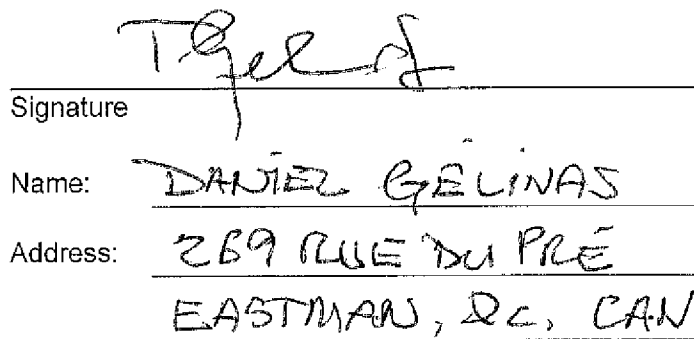 Signature
Name: DANIEL GÉLINAS
Address: 269 RUE DU PRÉ
EASTMAN, Qc, CAN